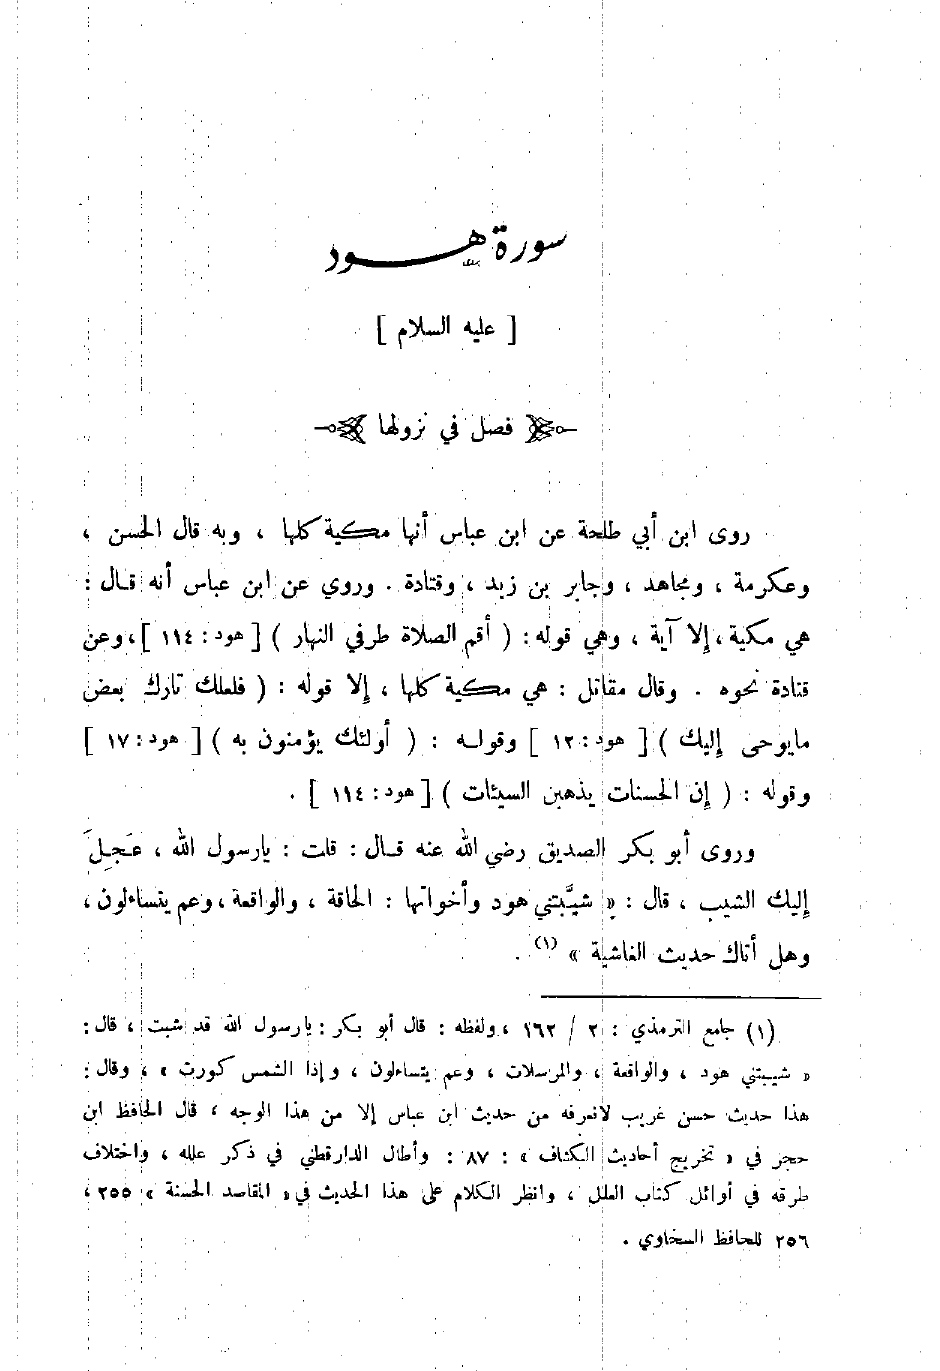 سورة هود
[ عليه السلام ]
فصل في نزولها
روى ابن أبي طلحة عن ابن عباس أنها مكية كلها ، وبه قال الحسن ،
وعكرمة ، ومجاهد ، وجابر بن زيد ، وقتادة . وروي عن ابن عباس أنه قال :
هي مكية ، إلا آية ، وهي قوله : ( أقم الصلاة طرفي النهار ) [ هود : ١١٤ ] ، وعن
قتادة نحوه . وقال مقاتل : هي مكية كلها ، إلا قوله : ( فلعلك تارك بعض
مايوحى إليك ) [ هود : ١٢ ] وقوله : ( أولئك يؤمنون به ) [ هود : ١٧ ]
وقوله : ( إن الحسنات يذهبن السيئات ) [ هود : ١١٤ ] .
وروى أبو بكر الصديق رضي الله عنه قال : قلت : يارسول الله ، عَجِلَ
إليك الشيب ، قال : « شيَّبتني هود وأخواتها : الحاقة ، والواقعة ، وعم يتساءلون ،
وهل أتاك حديث الغاشية » (١) .
(١) جامع الترمذي : ٢ / ١٦٢ ، ولفظه : قال أبو بكر : يارسول الله قد شبت ، قال :
« شيبتني هود ، والواقعة ، والمرسلات ، وعم يتساءلون ، وإذا الشمس كورت » ، وقال :
هذا حديث حسن غريب لانعرفه من حديث ابن عباس إلا من هذا الوجه ، قال الحافظ ابن
حجر في « تخريج أحاديث الكشاف » : ٨٧ : وأطال الدارقطني في ذكر علله ، واختلاف
طرقه في أوائل كتاب العلل ، وانظر الكلام على هذا الحديث في « المقاصد الحسنة » ٢٥٥ ،
٢٥٦ للحافظ السخاوي .